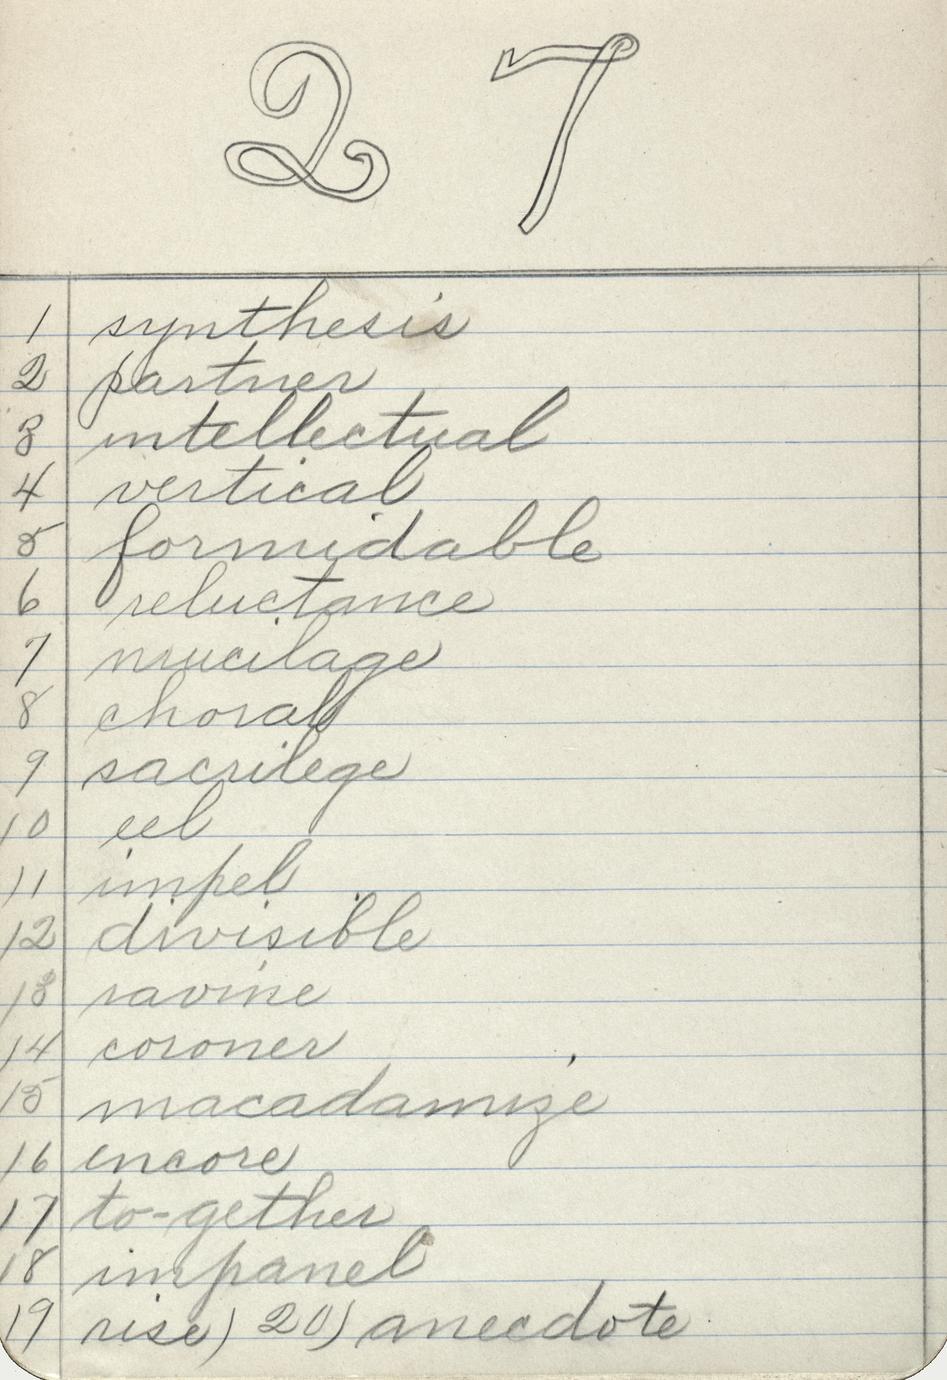 2 7
1 synthesis
2 partner
3 intellectual
4 vertical
5 formidable
6 reluctance
7 mucilage
8 choral
9 sacrilege
10 eel
11 impel
12 divisible
13 ravine
14 coroner
15 macadamize
16 encore
17 to-gether
18 impanel
19 rise) 20) anecdote